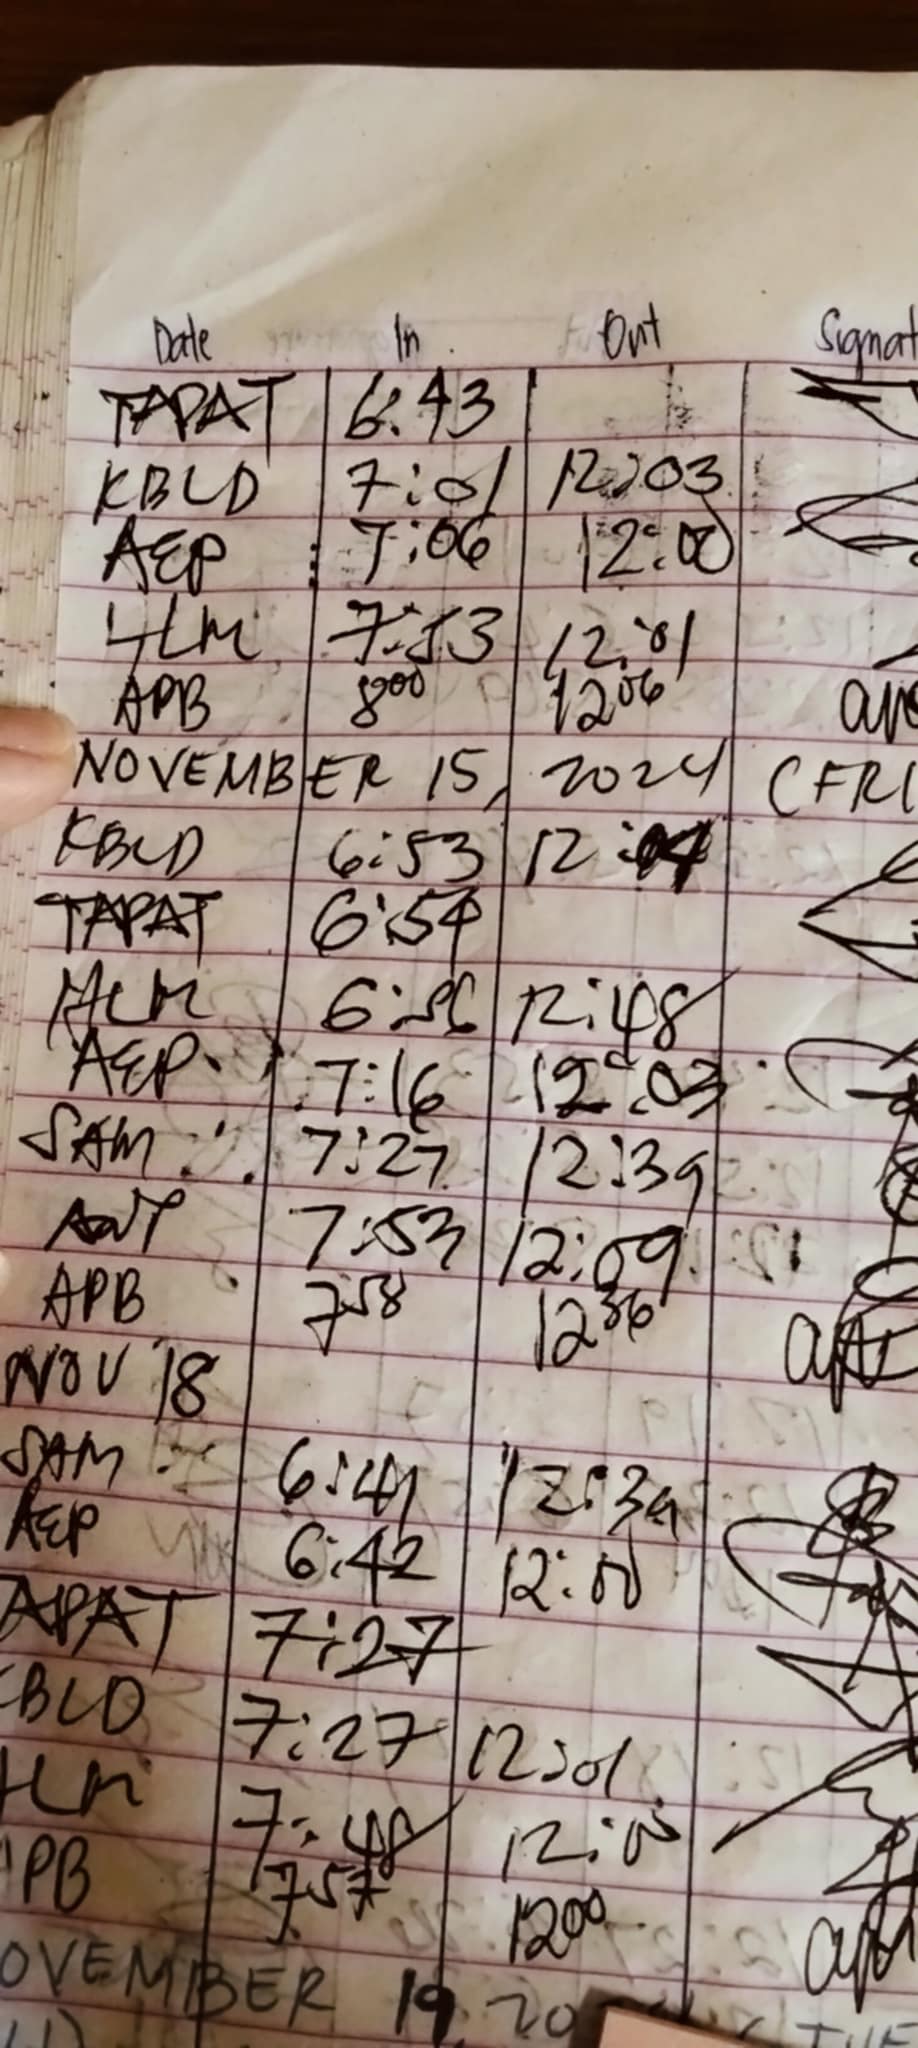 Date In Out Signat
TAPAT 6:43
KBLD 7:01 12:03
AEP 7:06 12:00
HLM 7:53 12:01
APB 8:00 12:06
NOVEMBER 15, 2024 (FRI
KBLD 6:53 12:04
TAPAT 6:54
HLM 6:56 12:48
AEP 7:16 12:03
SAM 7:27 12:39
7:53 12:09
APB 7:58 12:36
NOV 18
SAM 6:41 12:39
AEP 6:42 12:00
APAT 7:27
BLD 7:27 12:01
HLM 7:48
PB 7:57 12:00
OVEMBER 19, 20